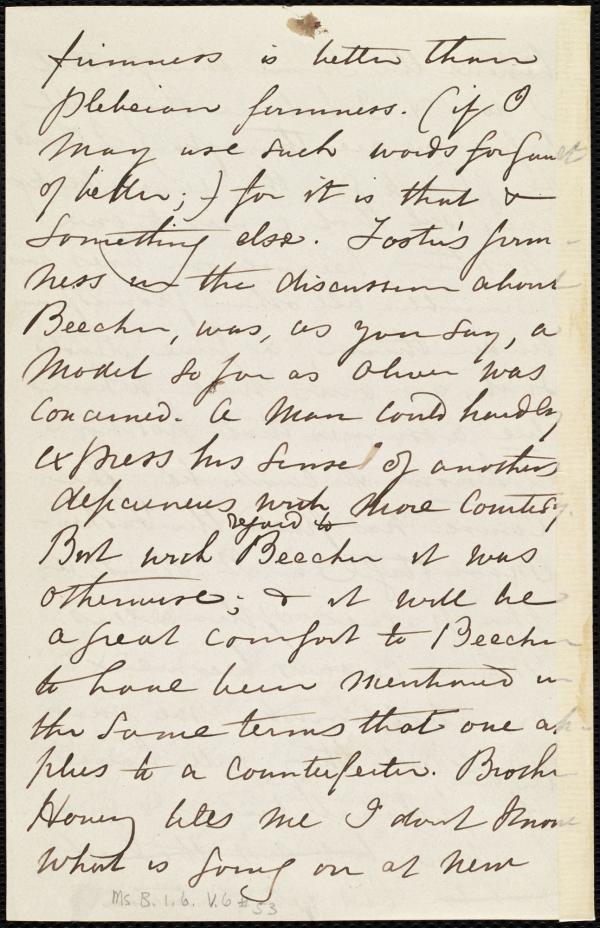 firmness is better than
plebeian firmness. (if I
may use such words for want
of better;) for it is that &
something else. Foster's firm-
ness in the discussion about
Beecher, was, as you say, a
model so far as Oliver was
concerned. A man could hardly
express his sense of another's
deficiencies with more courtesy.
regard to
But with Beecher it was
otherwise; & it will be
a great comfort to Beecher
to have been mentioned in
the same terms that one ap-
plies to a counterfeiter. Brother
Hovey tells me I don't know
what is going on at New
Ms. B. 1. 6. V. 6 # 53